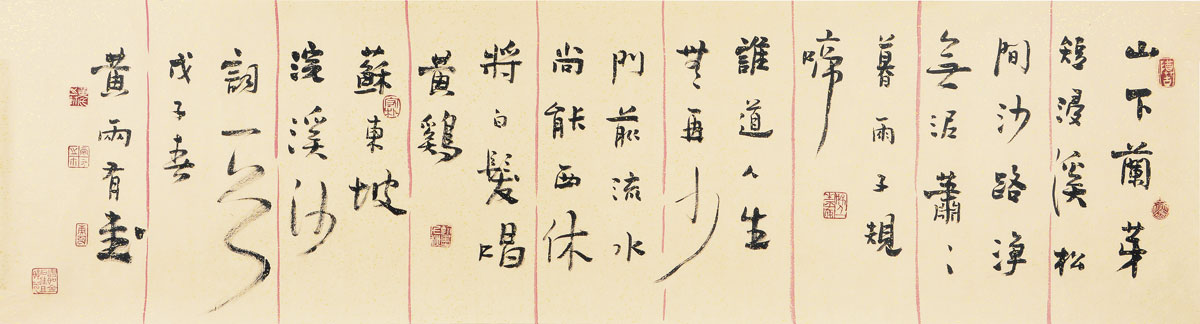 山下蘭芽
短浸溪松
間沙路淨
無泥蕭〻
暮雨子規
啼
誰道人生
無再少
門前流水
尚能西休
將白髮唱
黃鷄
蘇東坡
浣溪沙
詞一首
戊子春
黃雨有書